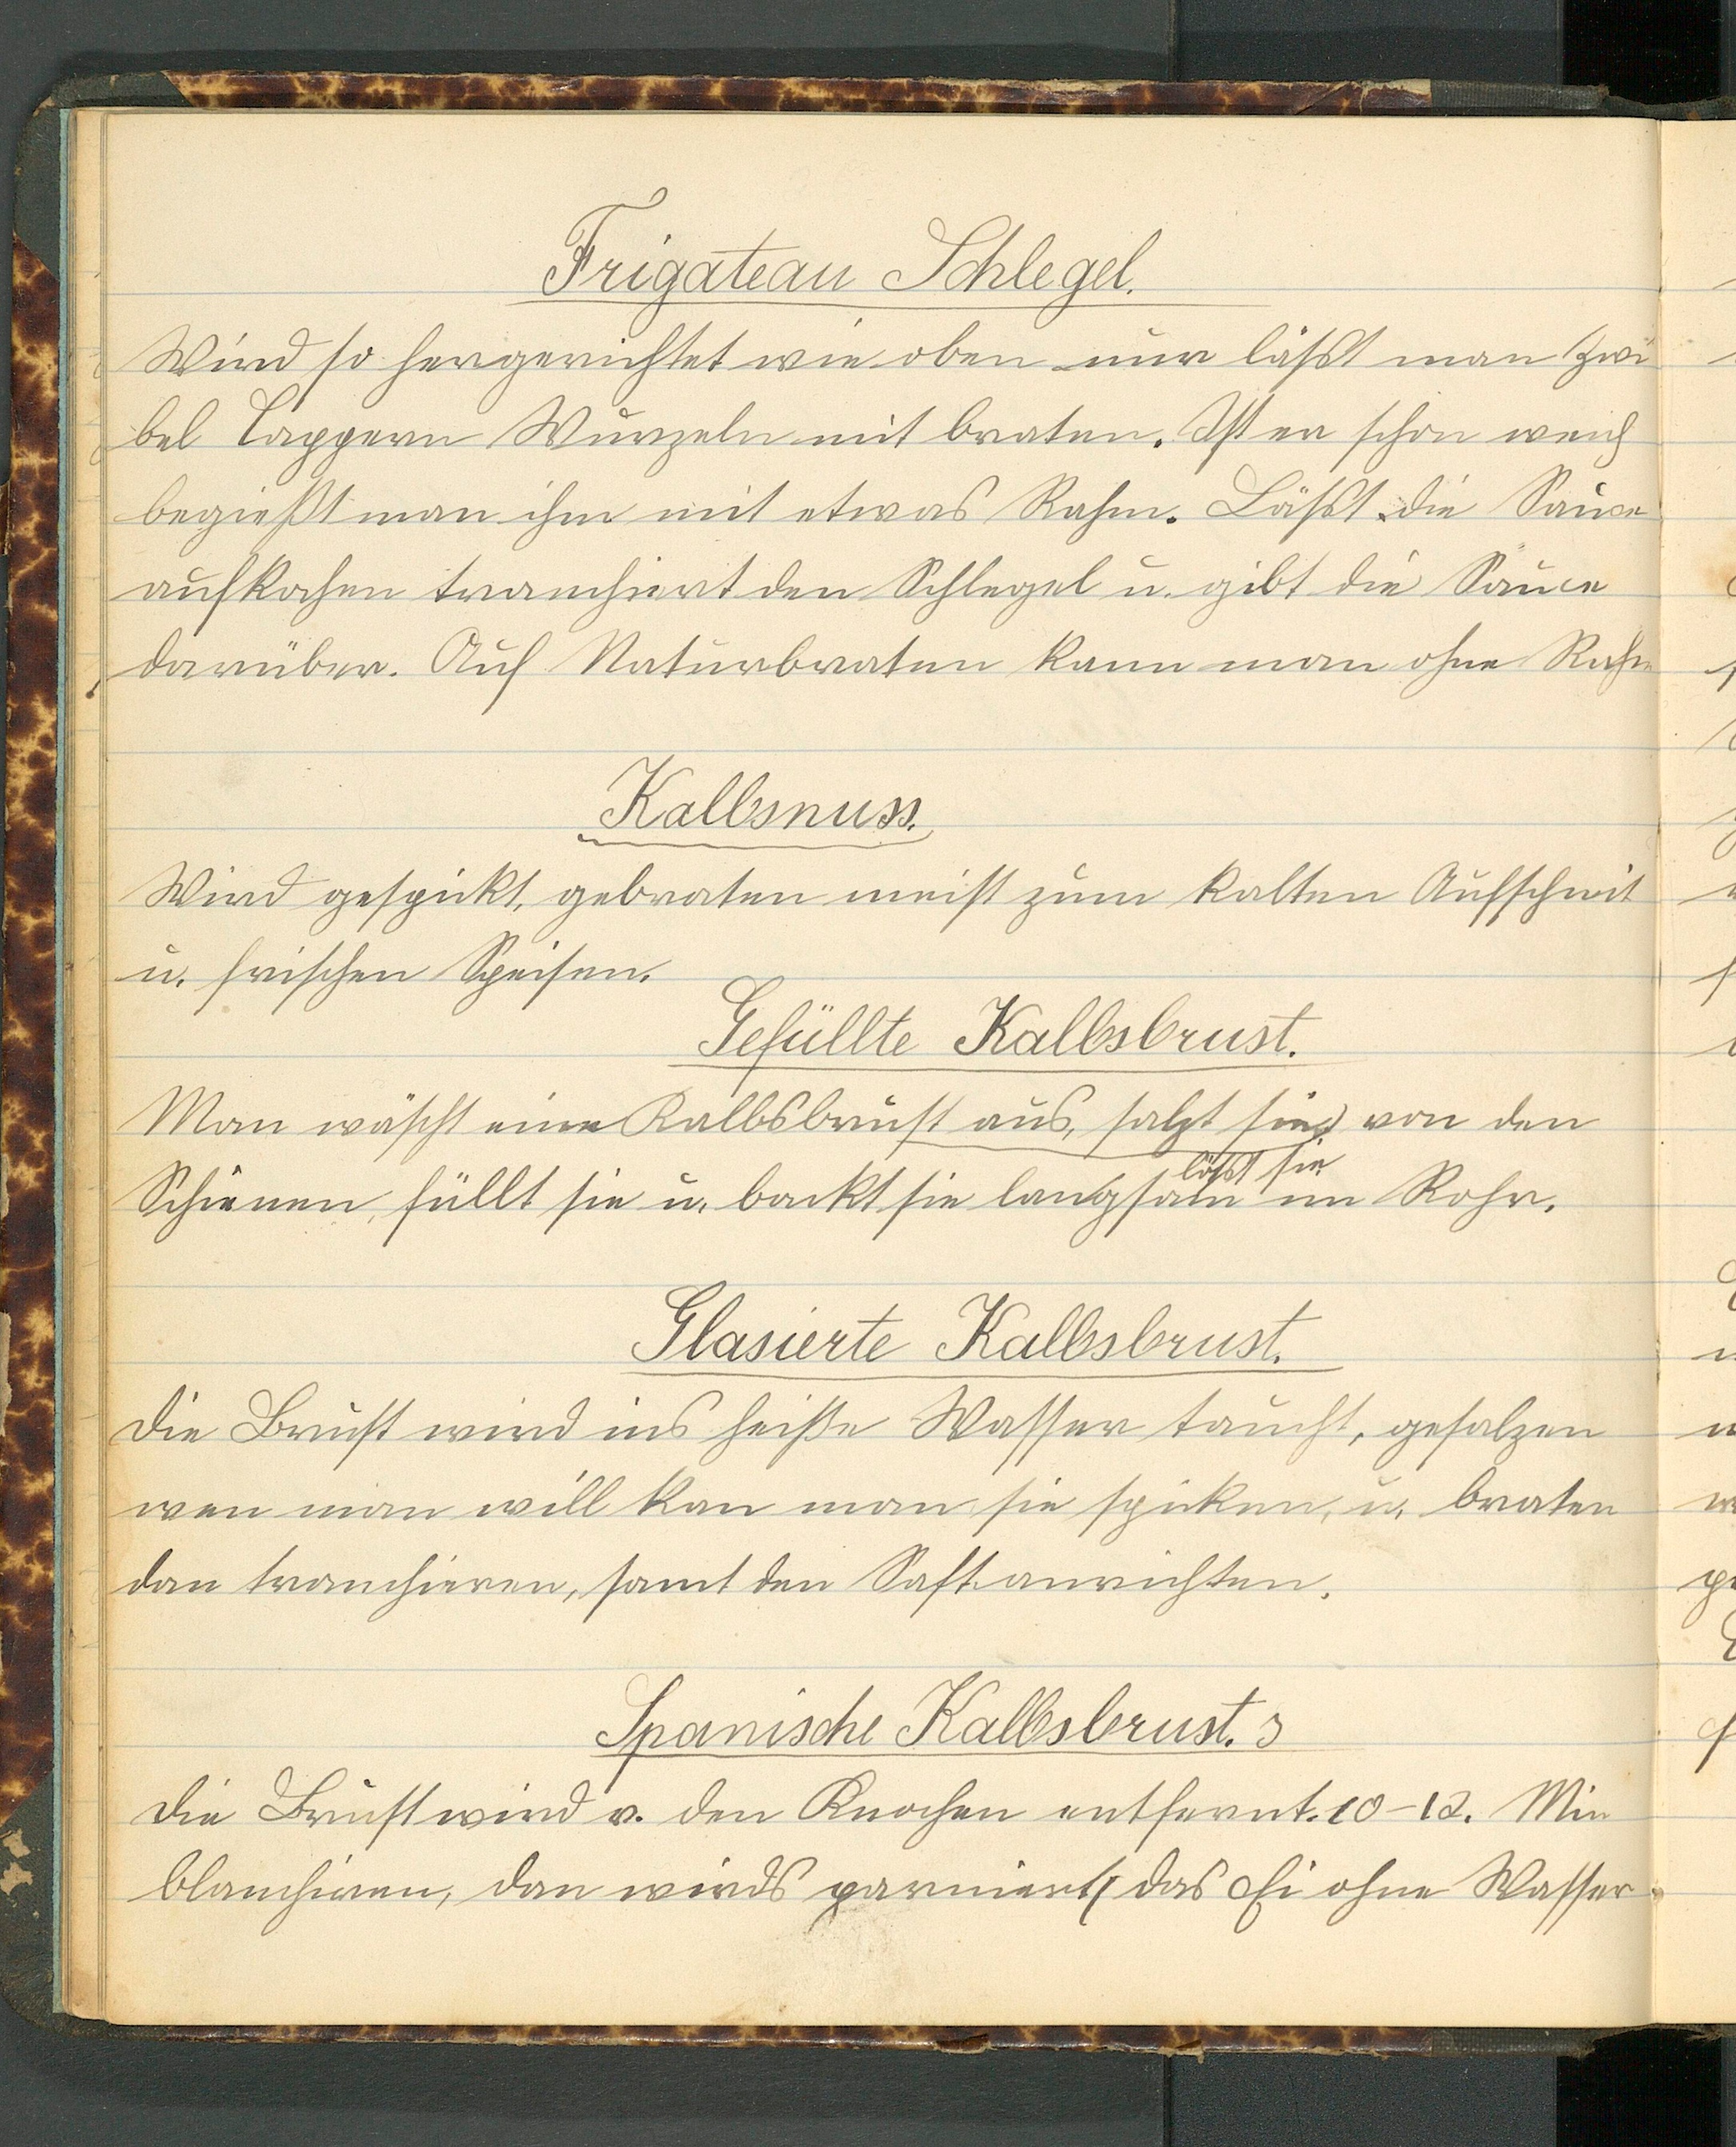 Frigateau Schlegel.
Wird so hergerichtet wie oben nur läßt man Zwi
bel Cappern Wurzeln mit braten. Ist er schon weich
begießt man ihm mit etwas Rahm. Läßt die Sauce
aufkochen tranchiert den Schlegel u. gibt die Sauce
darüber. Auch Naturbraten kann man ohne Rahm
Kalbsnuss.
Wird gespickt, gebraten meist zum kalten Aufschnit
u. frischen Speisen.
Gefüllte Kalbsbrust.
Man wäscht eine Kalbsbrust aus, salzt sie, von den
läßt sie
Schienen, füllt sie u. backt sie langsam im Rohr.
Glasierte Kalbsbrust.
Die Brust wird ins heiße Wasser taucht, gesalzen
wen man will kan man sie spicken, u. braten
dan tranchieren, samt den Saft anrichten.
Spanische Kalbsbrust.
Die Brust wird v. den Knochen entfernt. 10-12. Min
blanchiren, dan wirds parniert das Ei ohne Wasser